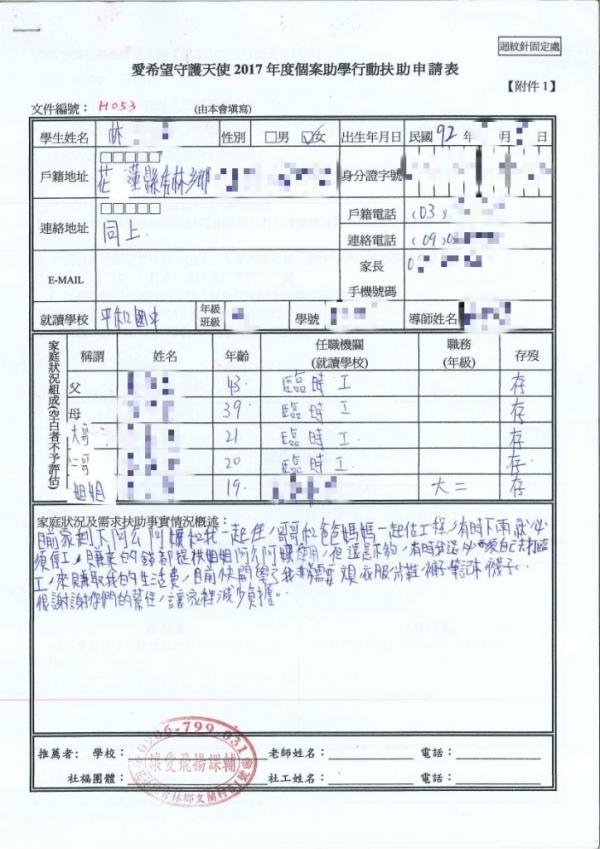 迴紋針固定處
愛希望守護天使 2017 年度個案助學行動扶助申請表
【附件 1】
文件編號： H053 (由本會填寫)
學生姓名 林 性別 □男 ☑女 出生年月日 民國 92 年 月 日
戶籍地址 □□□□□ 花蓮縣秀林鄉 身分證字號
連絡地址 □□□□□ 同上. 戶籍電話 (03)
連絡電話 (09)0
E-MAIL 家長手機號碼 0
就讀學校 平和國中 年級班級 學號 導師姓名
家庭狀況組成(空白者不予評估)
稱謂 姓名 年齡 任職機關(就讀學校) 職務(年級) 存歿
父 43 臨時工 存
母 39 臨時工 存
大哥 21 臨時工 存
二哥 20 臨時工 存
姐姐 19. 大二 存
家庭狀況及需求扶助事實情況概述：
目前家剩下阿公阿嬤和我一起住，哥哥和爸爸媽媽一起做工程，有時下雨就必
須停工，賺來的錢都提供姐姐阿公阿嬤使用，但還是不夠，有時
工，來賺取我的生活費，目前快開學了我需要 衣服 鞋 褲子 襪子.
很謝謝你們的 ，讓家裡減少負擔.
推薦者： 學校： 老師姓名： 電話：
社福團體： 社工姓名： 電話：
0906-799-031
讓愛飛揚課輔
秀林鄉文蘭村 61號